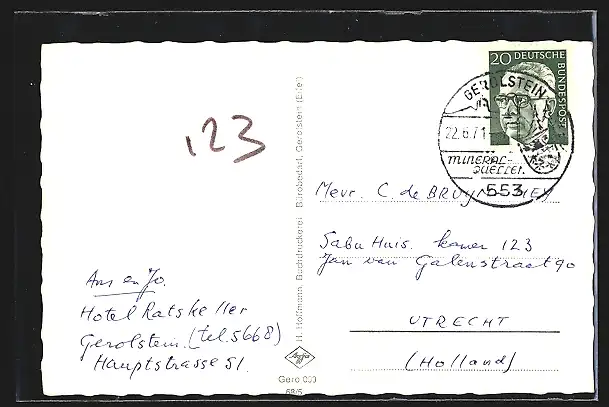 123
Ans en Jo.
Hotel Ratskeller
Gerolstein. (tel. 5668)
Hauptstrasse 51.
H. Hoffmann, Buchdruckerei Bürobedarf, Gerolstein (Eifel)
Agfa
Gero
20 DEUTSCHE
BUNDESPOST
GEROLSTEIN
22.6.71
MINERAL-
QUELLEN
553
Mevr. C. de
Huis. kamer 123
Jan van Galenstraat 90
UTRECHT
(Holland)